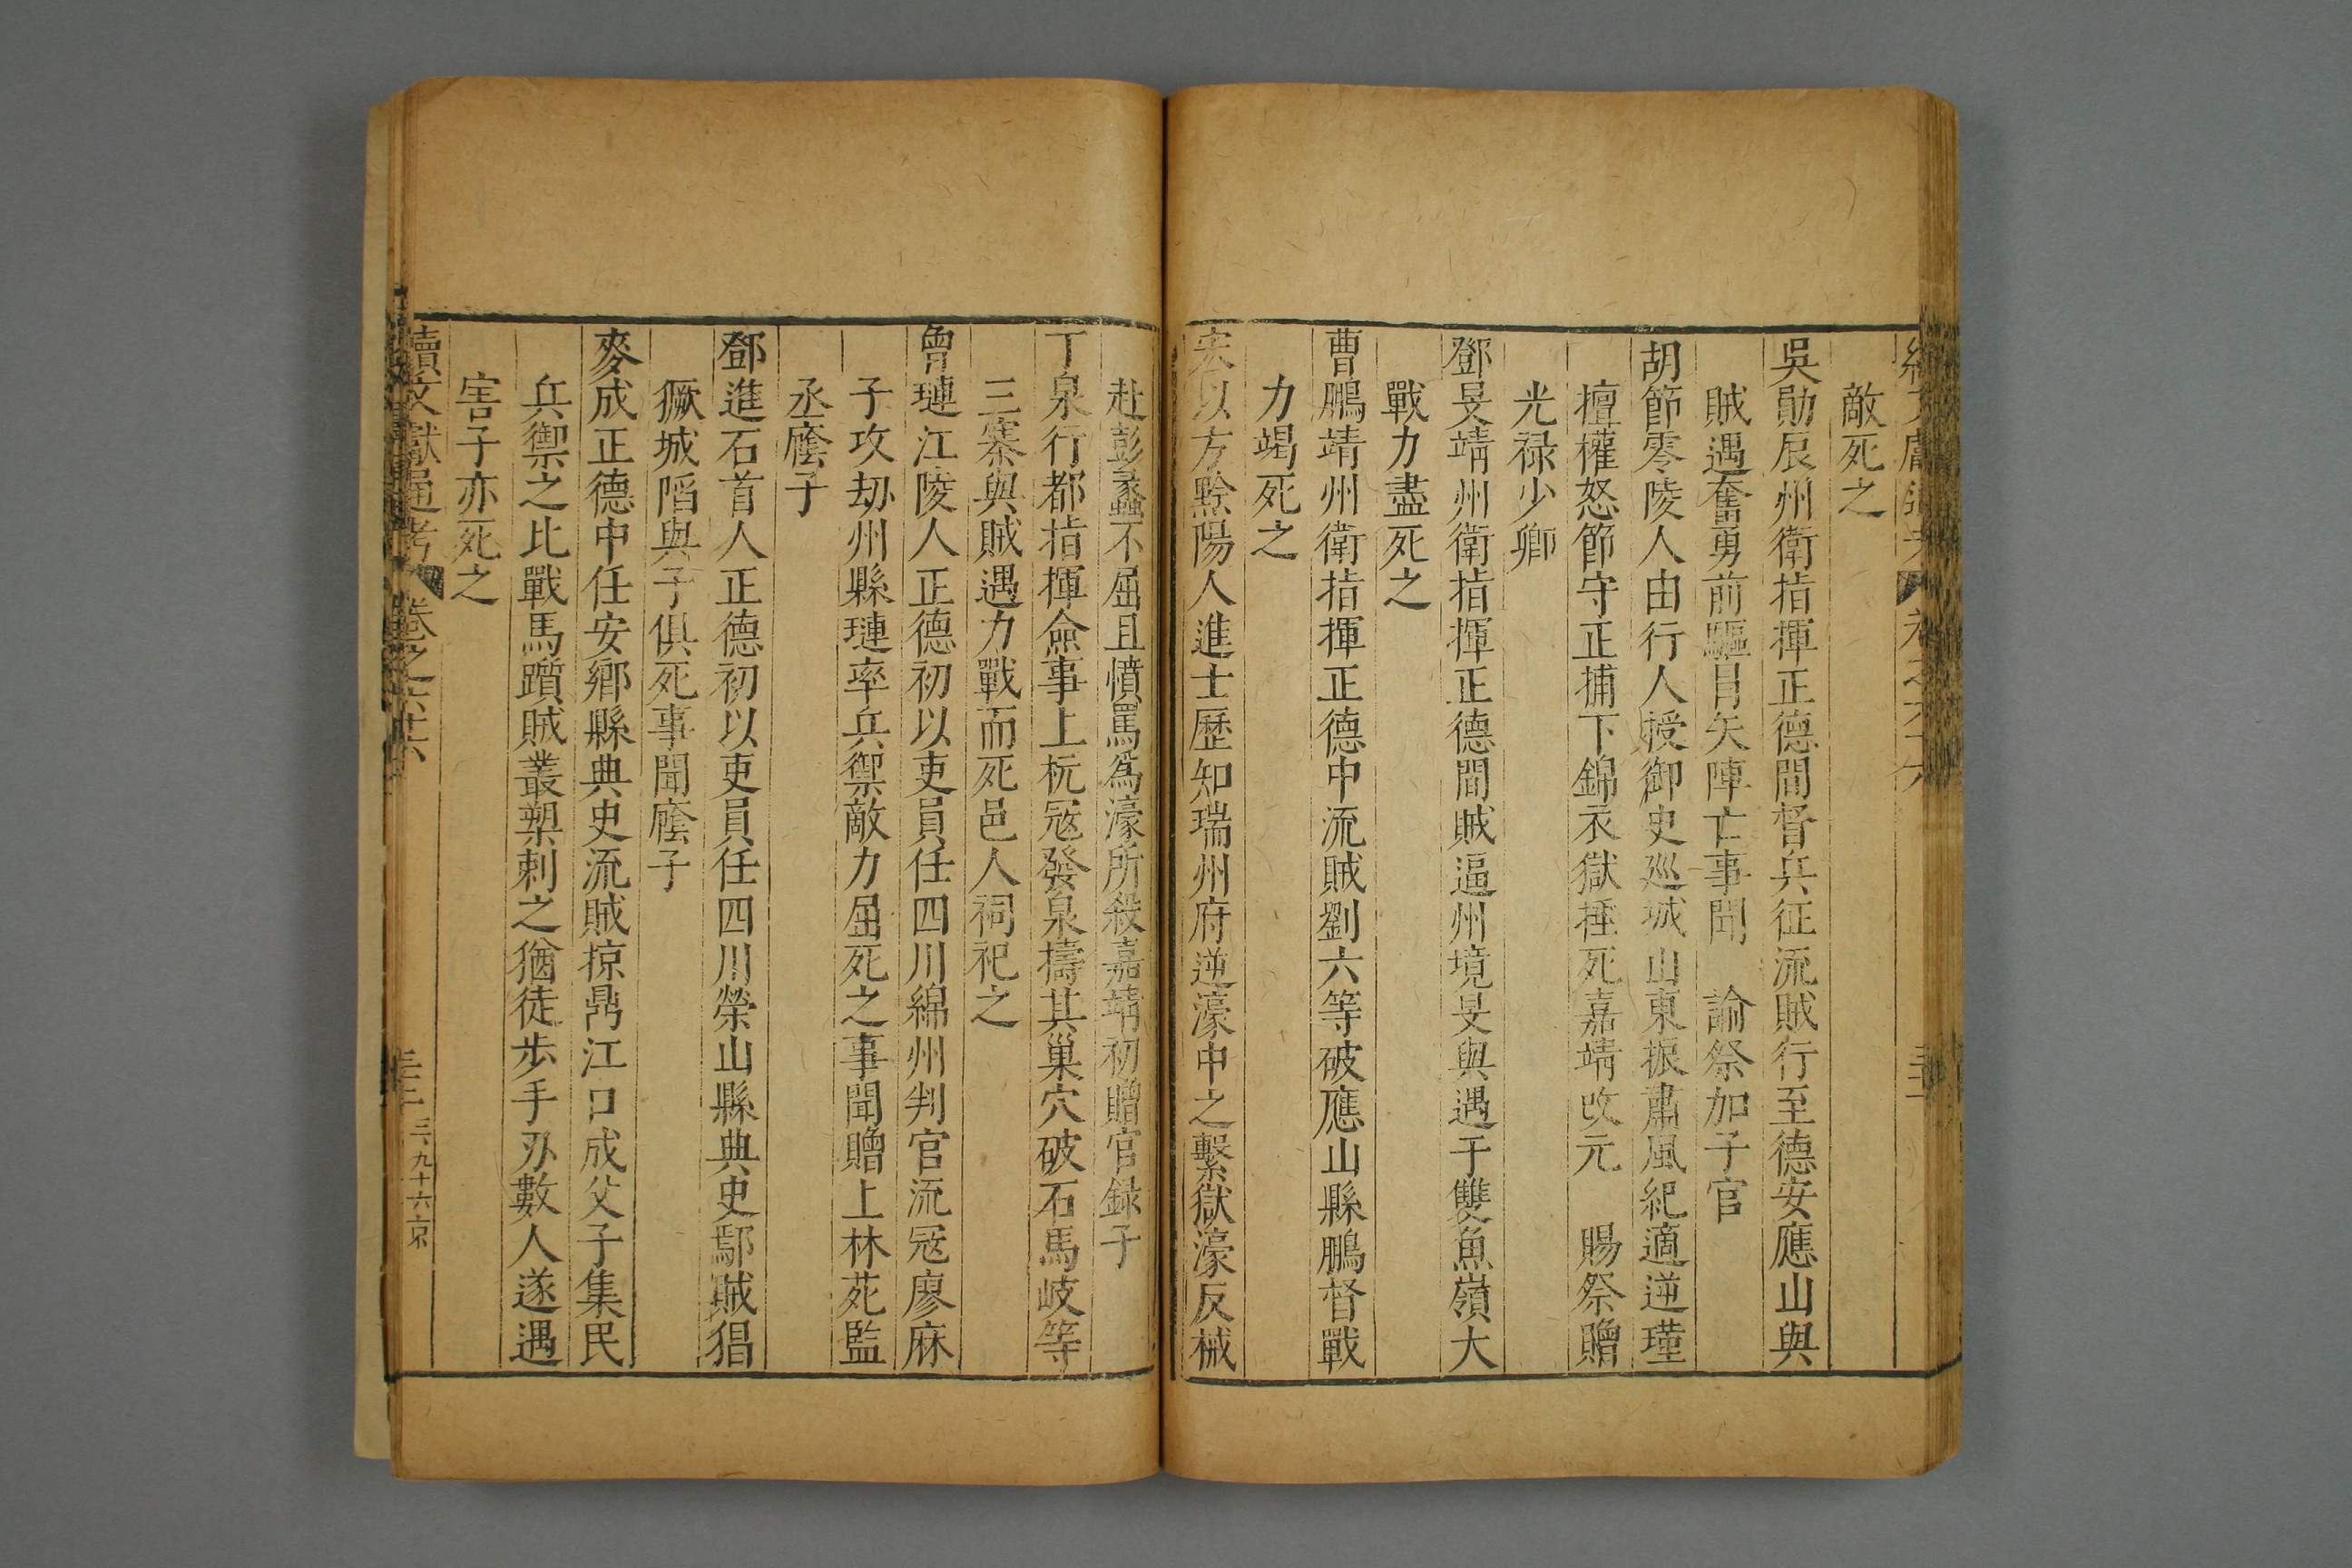 敵死之
吳勛辰州衛指揮正德間督兵征流賊行至德安應山與
賊遇奮勇前驅目矢陣亡事聞 諭祭加子官
胡節零陵人由行人授御史廵城山東振肅風紀適逆瑾
擅權怒節守正捕下錦衣獄捶死嘉靖改元 賜祭贈
光禄少卿
鄧旻靖州衛指揮正德間賊逼州境旻與遇于雙魚嶺大
戰力盡死之
曹鵬靖州衛指揮正德中流賊劉六等破應山縣鵬督戰
力竭死之
宋以方黔陽人進士歷知瑞州府逆濠中之繫獄濠反械
赴彭蠡不屈且憤罵爲濠所殺嘉靖初贈官録子
丁泉行都指揮僉事上杬冦發泉擣其巢穴破石馬岐等
三寨與賊遇力戰而死邑人祠祀之
曾璉江陵人正德初以吏員任四川綿州判官流冦廖麻
子攻刼州縣璉率兵禦敵力屈死之事聞贈上林苑監
丞廕子
鄧進石首人正德初以吏員任四川榮山縣典史鄢賊猖
獗城陷與子俱死事聞廕子
麥成正德中任安鄉縣典史流賊掠鼎江口成父子集民
兵禦之比戰馬躓賊叢槊刺之猶徒步手刃數人遂遇
害子亦死之
續文獻通考 卷之六十六
三九十六 京